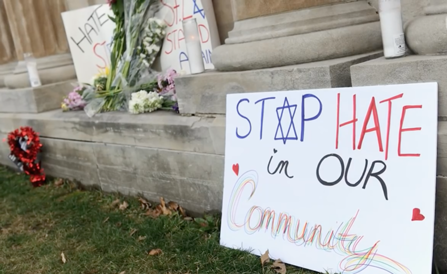 HATE
ST✡P HATE
in OUR
Community